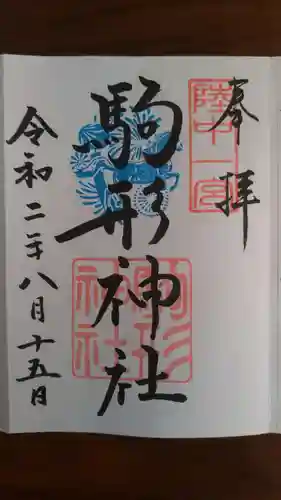 奉拝
陸中一宮
駒形神社
駒形神社
令和二年八月十五日